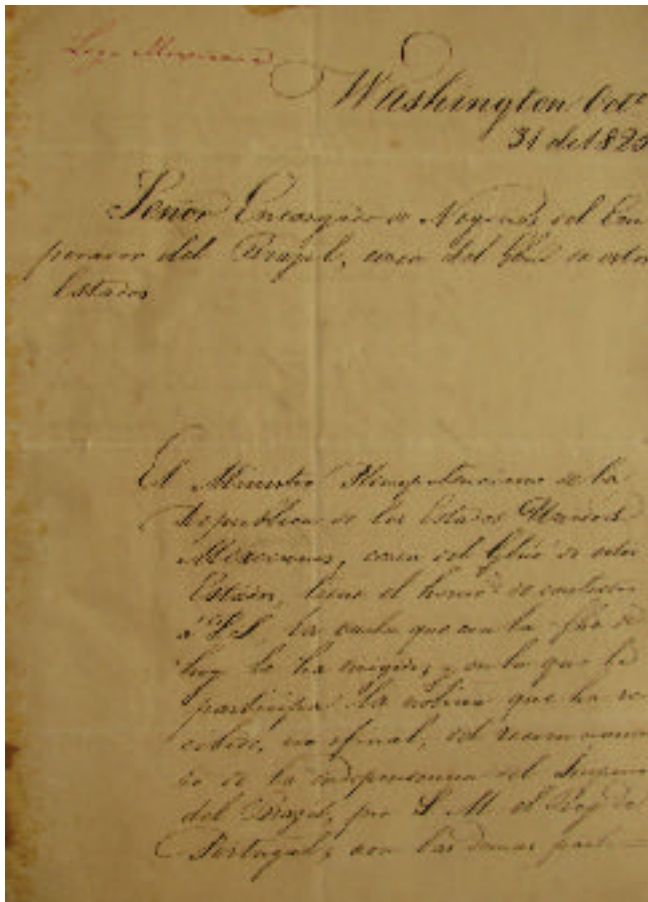 Lega Mexicana
Washington Oct.e
31 de 1825
Señor Encargado de Negocios del Em
perador del Brazil, cerca del Gbno de estos
Estados
El Ministro Plenipotenciario de la
Republica de los Estados Unidos
Mexicanos, cerca del Gbno de estos
Estados, tiene el honor de contestar
a S.S. la carta que con la fha de
hoy le ha dirigido, y en la que le
participa la noticia que ha re
cibido, no oficial, del reconocimien
to de la independencia del Imperio
del Brazil, por S. M. el Rey de
Portugal, con las demas parti